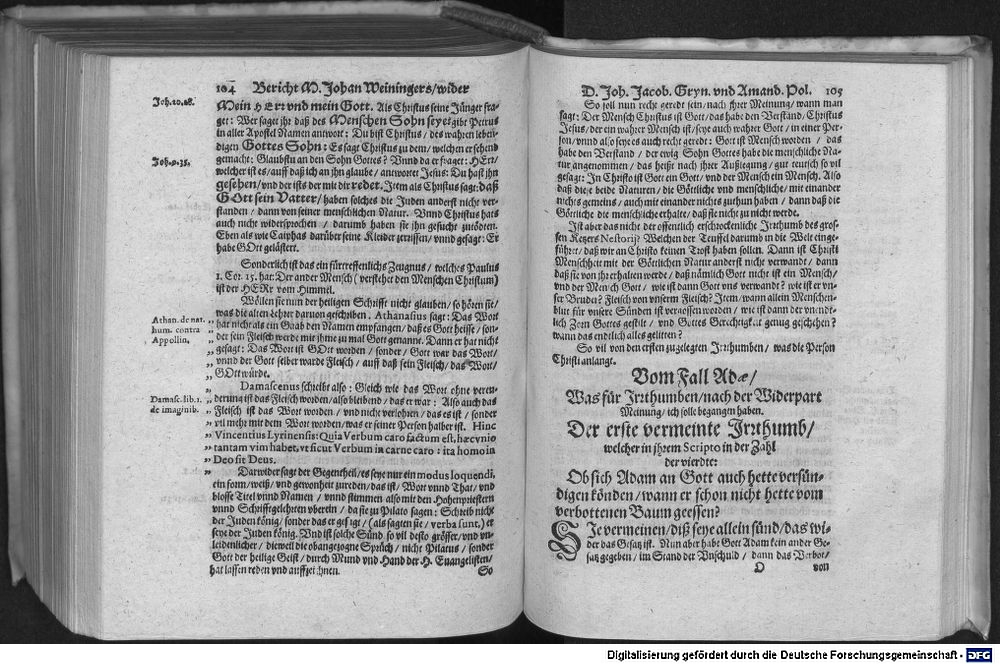 104 Bericht M. Johan Weiningers/wider
Joh.20.28.
Mein HErr vnd mein Gott. Als Christus seine Jünger fra-
get: Wer saget jhr daß des Menschen Sohn seye? gibt Petrus
in aller Apostel Namen antwort: Du bist Christus/ des wahren leben-
digen Gottes Sohn: Es sagt Christus zu dem/ welchen er sehend
Joh.9.35.
gemacht: Glaubstu an den Sohn Gottes? Vnnd da er fraget: HErr/
welcher ist es/ auff daß ich an jhn glaube/ antwortet Jesus: Du hast jhn
gesehen/ vnd der ists der mit dir redet. Item als Christus sagt: daß
GOtt sein Vatter/ haben solches die Juden anderst nicht ver-
standen/ dann von seiner menschlichen Natur. Vnnd Christus hats
auch nicht widersprochen/ darumb haben sie jhn gesucht zutödten.
Eben als wie Caiphas darüber seine Kleider zerrissen/ vnnd gesagt: Er
habe GOtt gelästert.
Sonderlich ist das ein fürtreffenlichs Zeugnus/ welches Paulus
1. Cor. 15. hat: Der ander Mensch (verstehet den Menschen Christum)
ist der HERr vom Himmel.
Wöllen sie nun der heiligen Schrifft nicht glauben/ so hören sie/
was die alten Lehrer daruon geschriben. Athanasius sagt: Das Wort
Athan. de nat.
hum. contra
Appollin.
„ hat nicht als ein Gaab den Namen empfangen/ daß es Gott heisse/ son-
„ der sein Fleisch werde mit jhme zu mal Gott genannt. Dann er hat nicht
„ gesagt: Das Wort ist GOtt worden/ sonder/ Gott war das Wort/
„ vnnd der Gott selber wurde Fleisch/ auff daß sein Fleisch/ das Wort/
„ GOtt würde.
„ Damascenus schreibt also: Gleich wie das Wort ohne veren-
Damasc. lib. 1.
de imaginib.
„ derung ist das Fleisch worden/ also bleibend/ das er war: Also auch das
„ Fleisch ist das Wort worden/ vnd nicht verlohren/ das es ist/ sonder
„ vil mehr mit dem Wort worden/ was er seiner Person halber ist. Hinc
„ Vincentius Lyrinensis: Quia Verbum caro factum est, hæc vnio
„ tantam vim habet, vt sicut Verbum in carne caro: ita homo in
„ Deo sit Deus.
„ Darwider sagt der Gegentheil/ es seye nur ein modus loquendi,
ein form/ weiß/ vnd gewonheit zureden/ das ist/ Wort vnnd That/ vnd
blosse Titel vnnd Namen/ vnnd stimmen also mit den Hohenpriestern
vnnd Schrifftgelehrten vberein/ da sie zu Pilato sagen: Schreib nicht
der Juden König/ sonder das er gesagt/ (als sagten sie/ verba sunt,) er
seye der Juden König. Vnd ist solche Sünd so vil desto grösser/ vnd vn-
leidenlicher/ dieweil die obangezogne Sprüch/ nicht Pilatus/ sonder
Gott der heilige Geist/ durch Mund vnd Hand der H. Euangelisten/
hat lassen reden vnd auffzeichnen.
So
D. Joh. Jacob. Gryn. vnd Amand. Pol. 105
So soll nun recht geredt sein/ nach jhrer Meinung/ wann man
saget: Der Mensch Christus ist Gott/ das habe den Verstand/ Christus
Jesus/ der ein wahrer Mensch ist/ seye auch wahrer Gott/ in einer Per-
son/ vnnd also seye es auch recht geredt: Gott ist Mensch worden/ das
habe den Verstand/ der ewig Sohn Gottes habe die menschliche Na-
tur angenommen/ das heißt nach jhrer Außlegung/ gut teutsch so vil
gesagt: In Christo ist Gott ein Gott/ vnd der Mensch ein Mensch. Also
daß dise beide Naturen/ die Göttliche vnd menschliche/ mit einander
nichts gemeins/ auch mit einander nichts zuthun haben/ dann daß die
Göttliche die menschliche erhalte/ daß sie nicht zu nicht werde.
Ist aber das nicht der offentlich erschrockenliche Irrthumb des gros-
sen Ketzers Nestorij? Welchen der Teuffel darumb in die Welt einge-
führet/ daß wir an Christo keinen Trost haben sollen. Dann ist Christi
Menschheit mit der Götlichen Natur anderst nicht verwandt/ dann
daß sie von jhr erhalten werde/ daß nämlich Gott nicht ist ein Mensch/
vnd der Mensch nicht Gott/ wie ist dann Gott vns verwandt? wie ist er vn-
ser Bruder? Fleisch von vnserm Fleisch? Item/ wann allein Menschen-
blut für vnsere Sünden ist vergossen worden/ wie ist dann der vnendt-
lich Zorn Gottes gestilt/ vnd Gottes Gerechtigkeit genug geschehen?
wann das endtlich alles gelitten?
So vil von den ersten zugelegten Irrthumben/ was die Person
Christi anlangt.
Vom Fall Adæ/
Was für Irrthumben/ nach der Widerpart
Meinung/ ich solle begangen haben.
Der erste vermeinte Irrthumb/
welcher in jhrem Scripto in der Zahl
der vierdte:
Ob sich Adam an Gott auch hette versün-
digen könden/ wann er schon nicht hette vom
verbottenen Baum geessen?
SJe vermeinen/ diß seye allein sünd/ das wi-
der das Gesatz ist. Nun aber habe Gott Adam kein ander Ge-
satz gegeben/ im Stand der Vnschuld/ dann das Verbot/
O von
Digitalisierung gefördert durch die Deutsche Forschungsgemeinschaft - DFG